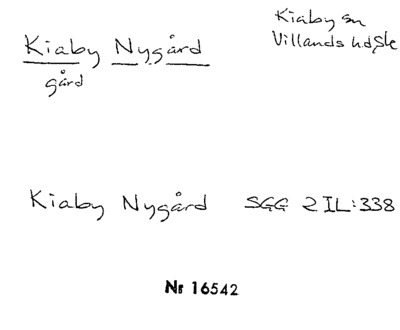 Kiaby Nygård
gård
Kiaby sn
Villands hd, Sk
Kiaby Nygård SGG 2 IL:338
Nr 16542